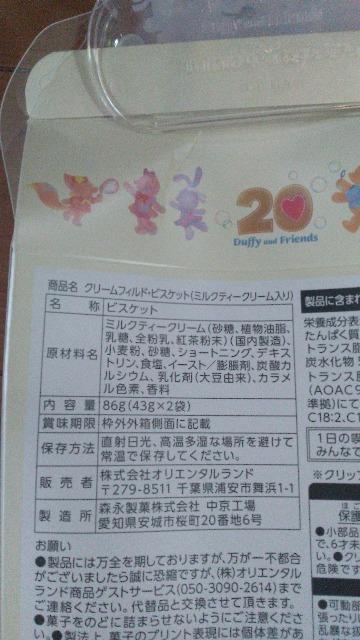 20
Duffy and Friends
商品名 クリームフィルド・ビスケット(ミルクティークリーム入り)
名 称 ビスケット
原材料名 ミルクティークリーム(砂糖、植物油脂、
乳糖、全粉乳、紅茶粉末)(国内製造)、
小麦粉、砂糖、ショートニング、デキス
トリン、食塩、イースト/膨脹剤、炭酸カ
ルシウム、乳化剤(大豆由来)、カラメ
ル色素、香料
内 容 量 86g(43g×2袋)
賞味期限 枠外外箱側面に記載
保存方法 直射日光、高温多湿な場所を避けて
常温で保存してください。
販 売 者 株式会社オリエンタルランド
〒279-8511 千葉県浦安市舞浜1-1
製 造 所 森永製菓株式会社 中京工場
愛知県安城市桜町20番地6号
お願い
●製品には万全を期しておりますが、万が一不都合
がございましたら誠に恐縮ですが、(株)オリエンタル
ランド商品ゲストサービス(050-3090-2614)まで
ご連絡ください。代替品と交換させて頂きます。
●菓子をのどに詰まらせないようにご注意くださ
い。●製法上、菓子のプリント表現には個体差があ
製品に含まれ
栄養成分表
たんぱく質
トランス脂
炭水化物
トランス脂
(AOAC9
準拠)にて
C18:2、C1
1日の喫
みんなで
※クリッ
保護
●小部品
で、6才未
い。●クリ
危険です
●可動部
張ったり
乱暴な